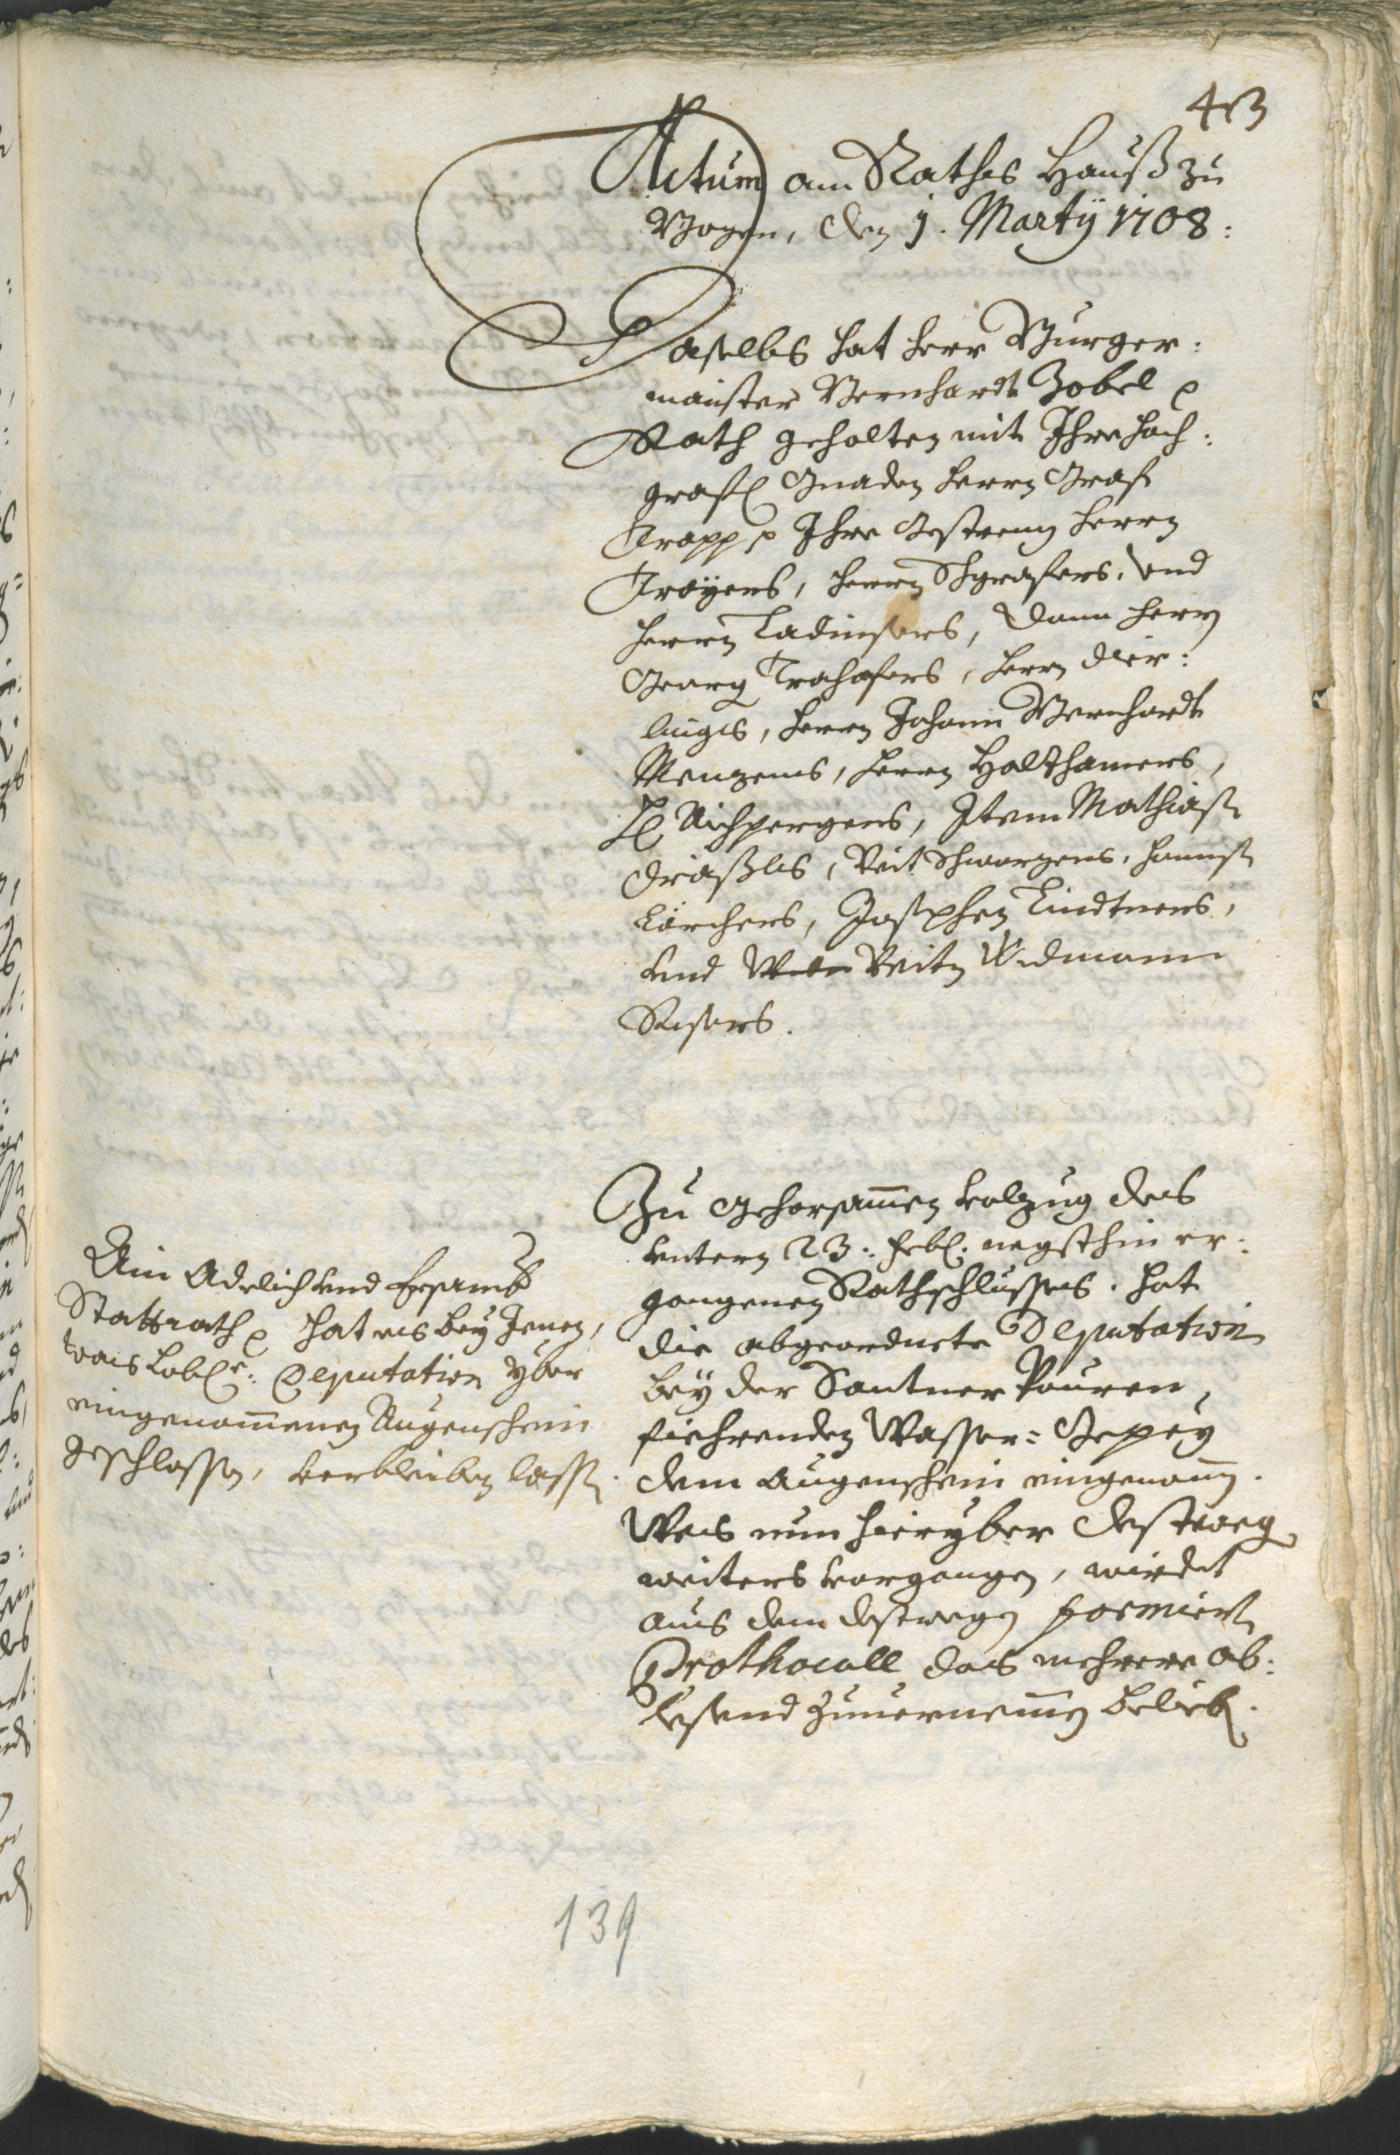 43
Actum am Rathshauß zu
Bozen, den 1. Martÿ 1708:
Daselbs hat herr Burger:
maister Bernhardt Zobel p
Rath gehalten mit Ihro hoch:
grafl Gnaden herrn Graf
Trapp p Ihro Gestreng herrn
Troÿers, herrn Schgrafers, vnd
herrn Ladinsers, dann herrn
Georg Trahofers, herrn
herrn Johann Bernhardt
Menzens, herrn Holzhamers,
hl Aichpergers, Item Mathiaß
Veit Schwarzens, hannß
Lärchers, Josephen Lindtners,
vnd Veiten Widmann
Zu gehorsamen volzug des
vntern 23: febl: negsthin er:
gangenen Rathschlusses, hat
die abgeordnete Deputation
beÿ der Santner Pauren,
fiehrenden Wasser=
dem Augenschein eingenomn.
Was nun hieryber destweg
weiters vorgangen, wirdet
aus dem destwegen formiert
Prothocoll das mehrere ab:
lesend zuuernemen belieb.
Ain Adelich vnd Ersamb
Stattrath p hat es beÿ Jenen,
was Lobl: Deputation yber
eingenomenen Augenschein
geschlossen, verbleiben lassen.
139